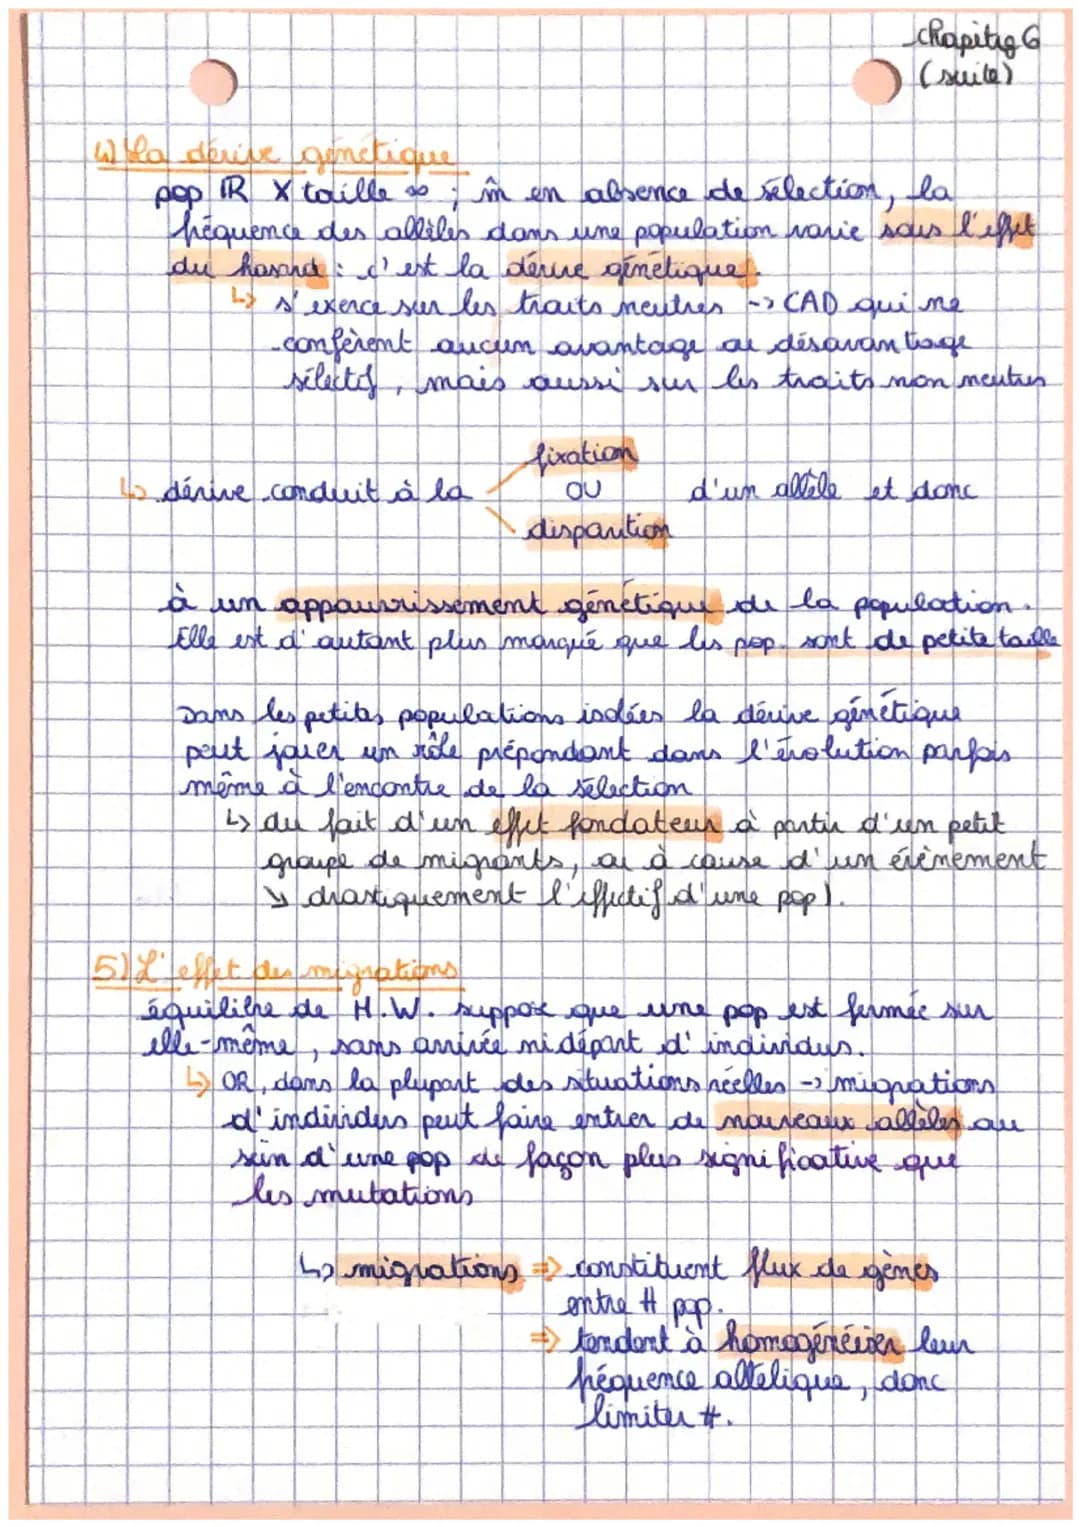 Chapitre 6
(suite)
4) La dérive génétique
pop IR X taille ∞ ; m̂ en absence de sélection, la
fréquence des allèles dans une population varie sous l'effet
du hasard : c'est la dérive génétique.
↳ s'exerce sur les traits neutres -> CAD qui ne
confèrent aucun avantage ou désavantage
sélectif, mais aussi sur les traits non neutres
fixation
↳ dérive conduit à la OU d'un allèle et donc
disparition
à un appauvrissement génétique de la population.
Elle est d'autant plus marqué que les pop. sont de petite taille
Dans les petites populations isolées la dérive génétique
peut jouer un rôle prépondant dans l'évolution parfois
même à l'encontre de la sélection
↳ du fait d'un effet fondateur à partir d'un petit
groupe de migrants, ou à cause d'un évènement
↘ drastiquement l'effectif d'une pop).
5) L'effet des migrations
équilibre de H.W. suppose que une pop est fermée sur
elle-même, sans arrivée ni départ d'individus.
↳ OR, dans la plupart des situations réelles -> migrations
d'individus peut faire entrer de nouveaux allèles au
sein d'une pop de façon plus significative que
les mutations
↳ migrations => constituent flux de gènes
entre ≠ pop.
=> tendent à homogénéiser leur
fréquence allélique, donc
limiter ≠.